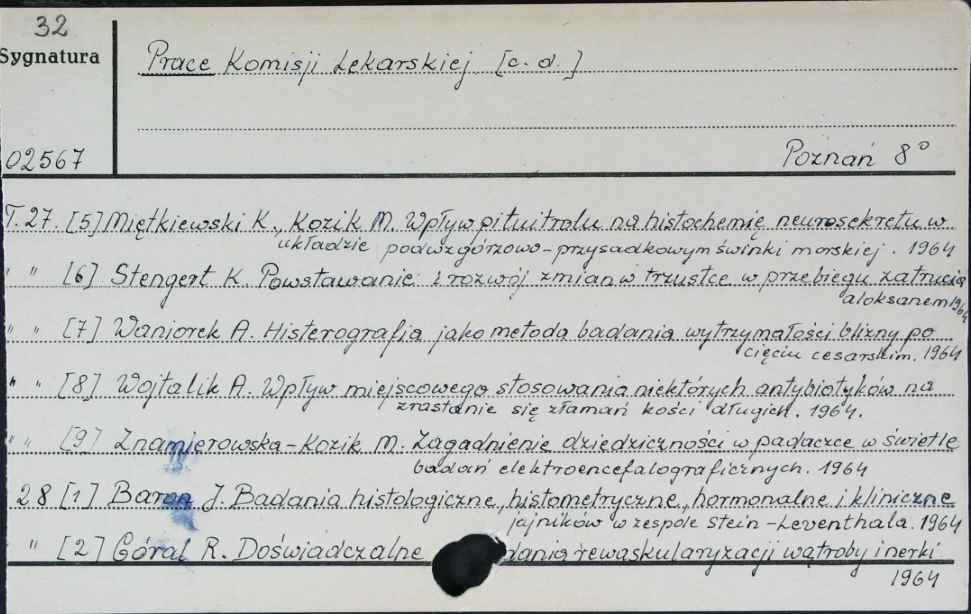 32
Sygnatura
Prace Komisji Lekarskiej [c.d.]
02567
Poznań 8°
T.27. [5] Miętkiewski K., Kozik M. Wpływ pituitrolu na histochemię neurosekretu w
układzie podwzgórzowo-przysadkowym świnki morskiej. 1964
" " [6] Stengert K. Powstawanie i rozwój zmian w trzustce w przebiegu zatrucia
aloksanem 1964
" " [7] Waniorek A. Histerografia jako metoda badania wytrzymałości blizny po
cięciu cesarskim. 1964
" " [8] Wojtalik A. Wpływ miejscowego stosowania niektórych antybiotyków na
zrastanie się złamań kości długich. 1964.
" " [9] Znamierowska-Kozik M. Zagadnienie dziedziczności w padaczce w świetle
badań elektroencefalograficznych. 1964
28 [1] Baron J. Badania histologiczne, histometryczne, hormonalne i kliniczne
jajników w zespole Stein-Leventhala. 1964
" [2] Góral R. Doświadczalne dania rewaskularyzacji wątroby i nerki
1964